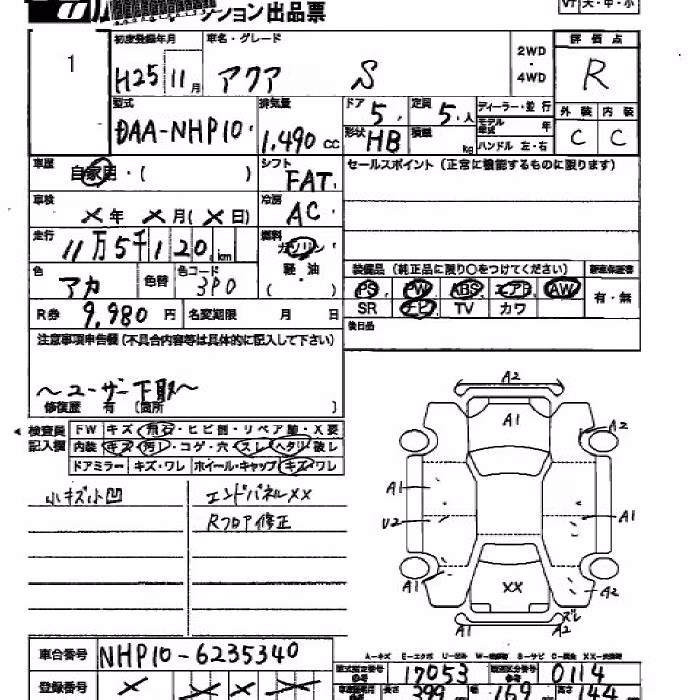 ション出品票
大・中・小
1
初度登録年月 車名・グレード 2WD・4WD 評価点
H25 11月 アクア S R
型式 排気量 ドア 定員 ディーラー・並行 外装 内装
DAA-NHP10 1,490 cc 5 5人 モデル年式 年 C C
形状 HB 積載 kg ハンドル 左・右
車歴 自家用・( ) シフト FAT セールスポイント(正常に機能するものに限ります)
車検 ×年 ×月(×日) 冷房 AC
走行 11万5千120km 燃料 ガソリン・軽油・( )
色 アカ 色替 色コード 3P0
装備品(純正品に限り○をつけてください) 新車保証書
PS PW ABS エアB AW 有・無
SR ナビ TV カワ
R券 9,980円 名変期限 月 日 後日品
注意事項申告欄(不具合内容等は具体的に記入して下さい)
〜ユーザー下取〜
修復歴 有 〔箇所 〕
検査員記入欄
FW キズ・飛石・ヒビ割・リペア跡・X要
内装 キズ・汚レ・コゲ・穴・スレ・ヘタリ・破レ
ドアミラー キズ・ワレ ホイール・キャップ キズ・ワレ
小キズ小凹 エンドパネルXX
Rフロア修正
A2
A1
A2
A1
U2 A1
XX
A1 A2
A1 A2 ズレ
A-キズ E-エクボ
車台番号 NHP10-6235340
17053 0114
登録番号 × × × ×
長さ 399 169 144